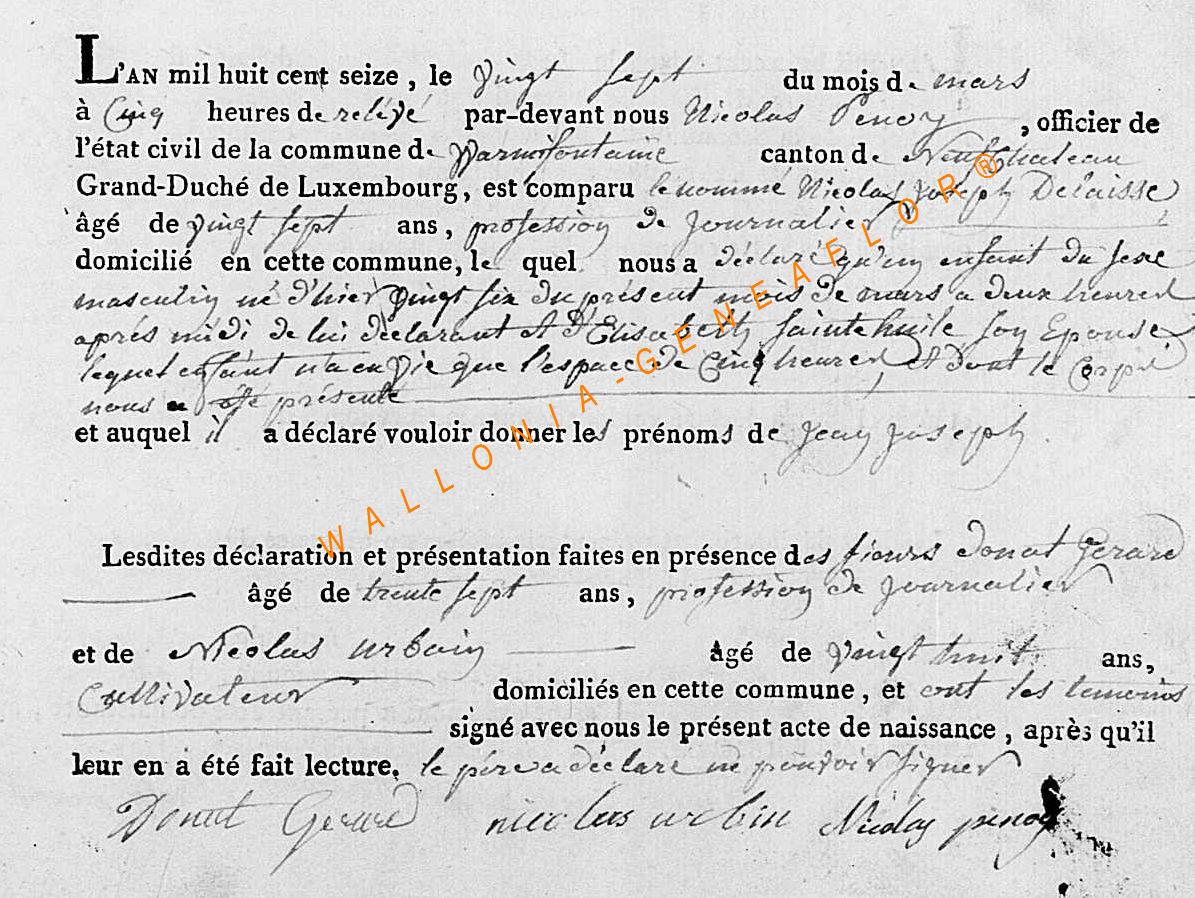 L'AN mil huit cent seize, le vingt sept du mois de mars
à Cinq heures de relévé par-devant nous Nicolas Penoy, officier de
l'état civil de la commune de Warmifontaine canton de Neufchateau
Grand-Duché de Luxembourg, est comparu le nommé Nicolas Joseph Delaisse
âgé de vingt sept ans, profession de journalier
domicilié en cette commune, le quel nous a déclaré qu'un enfant du sexe
masculin né d'hier vingt six du présent mois de mars a deux heures
aprés midi de lui déclarant et d'Elisabeth Saintehuile son Epouse
lequel enfant n'a eu vie que l'espace de Cinq heures, et dont le Corps
nous a été présenté
et auquel il a déclaré vouloir donner les prénoms de Jean Joseph
Lesdites déclaration et présentation faites en présence des sieurs Donat Gerard
âgé de trente sept ans, profession de journalier
et de Nicolas urbain âgé de vingt huit ans,
Cultivateur domiciliés en cette commune, et ont les temoins
signé avec nous le présent acte de naissance, après qu'il
leur en a été fait lecture. le pére a déclaré ne pouvoir signer
Donat Gerard nicolas urbin Nicolas penoy
WALLONIA-GENEAFLOR®